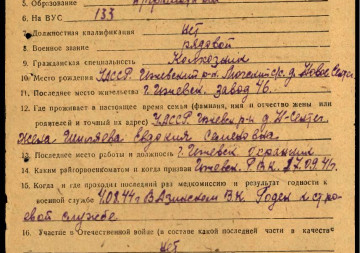 5. Образование
6. На ВУС 133
7. Должностная квалификация нет
8. Военное звание рядовой
9. Гражданская специальность Колхозник
10. Место рождения УАССР. Ижевский р-н. д. Новое
11. Последнее место жительства г. Ижевск. завод 46.
12. Где проживает в настоящее время семья (фамилия, имя и отчество жены или
родителей и точный их адрес) УАССР. Ижевск. р-н д. Н-
Жена Евдокия Семеновна
13. Последнее место работы и должность г. Ижевск охранник
14. Каким райгорвоенкоматом и когда призван Ижевск. Р.В.К. 27.09.41г.
15. Когда и где проходил последний раз медкомиссию и результат годности к
военной службе 4.08.44г В. К. Годен к стро-
евой службе
16. Участие в Отечественной войне (в составе какой последней части в качестве
нет